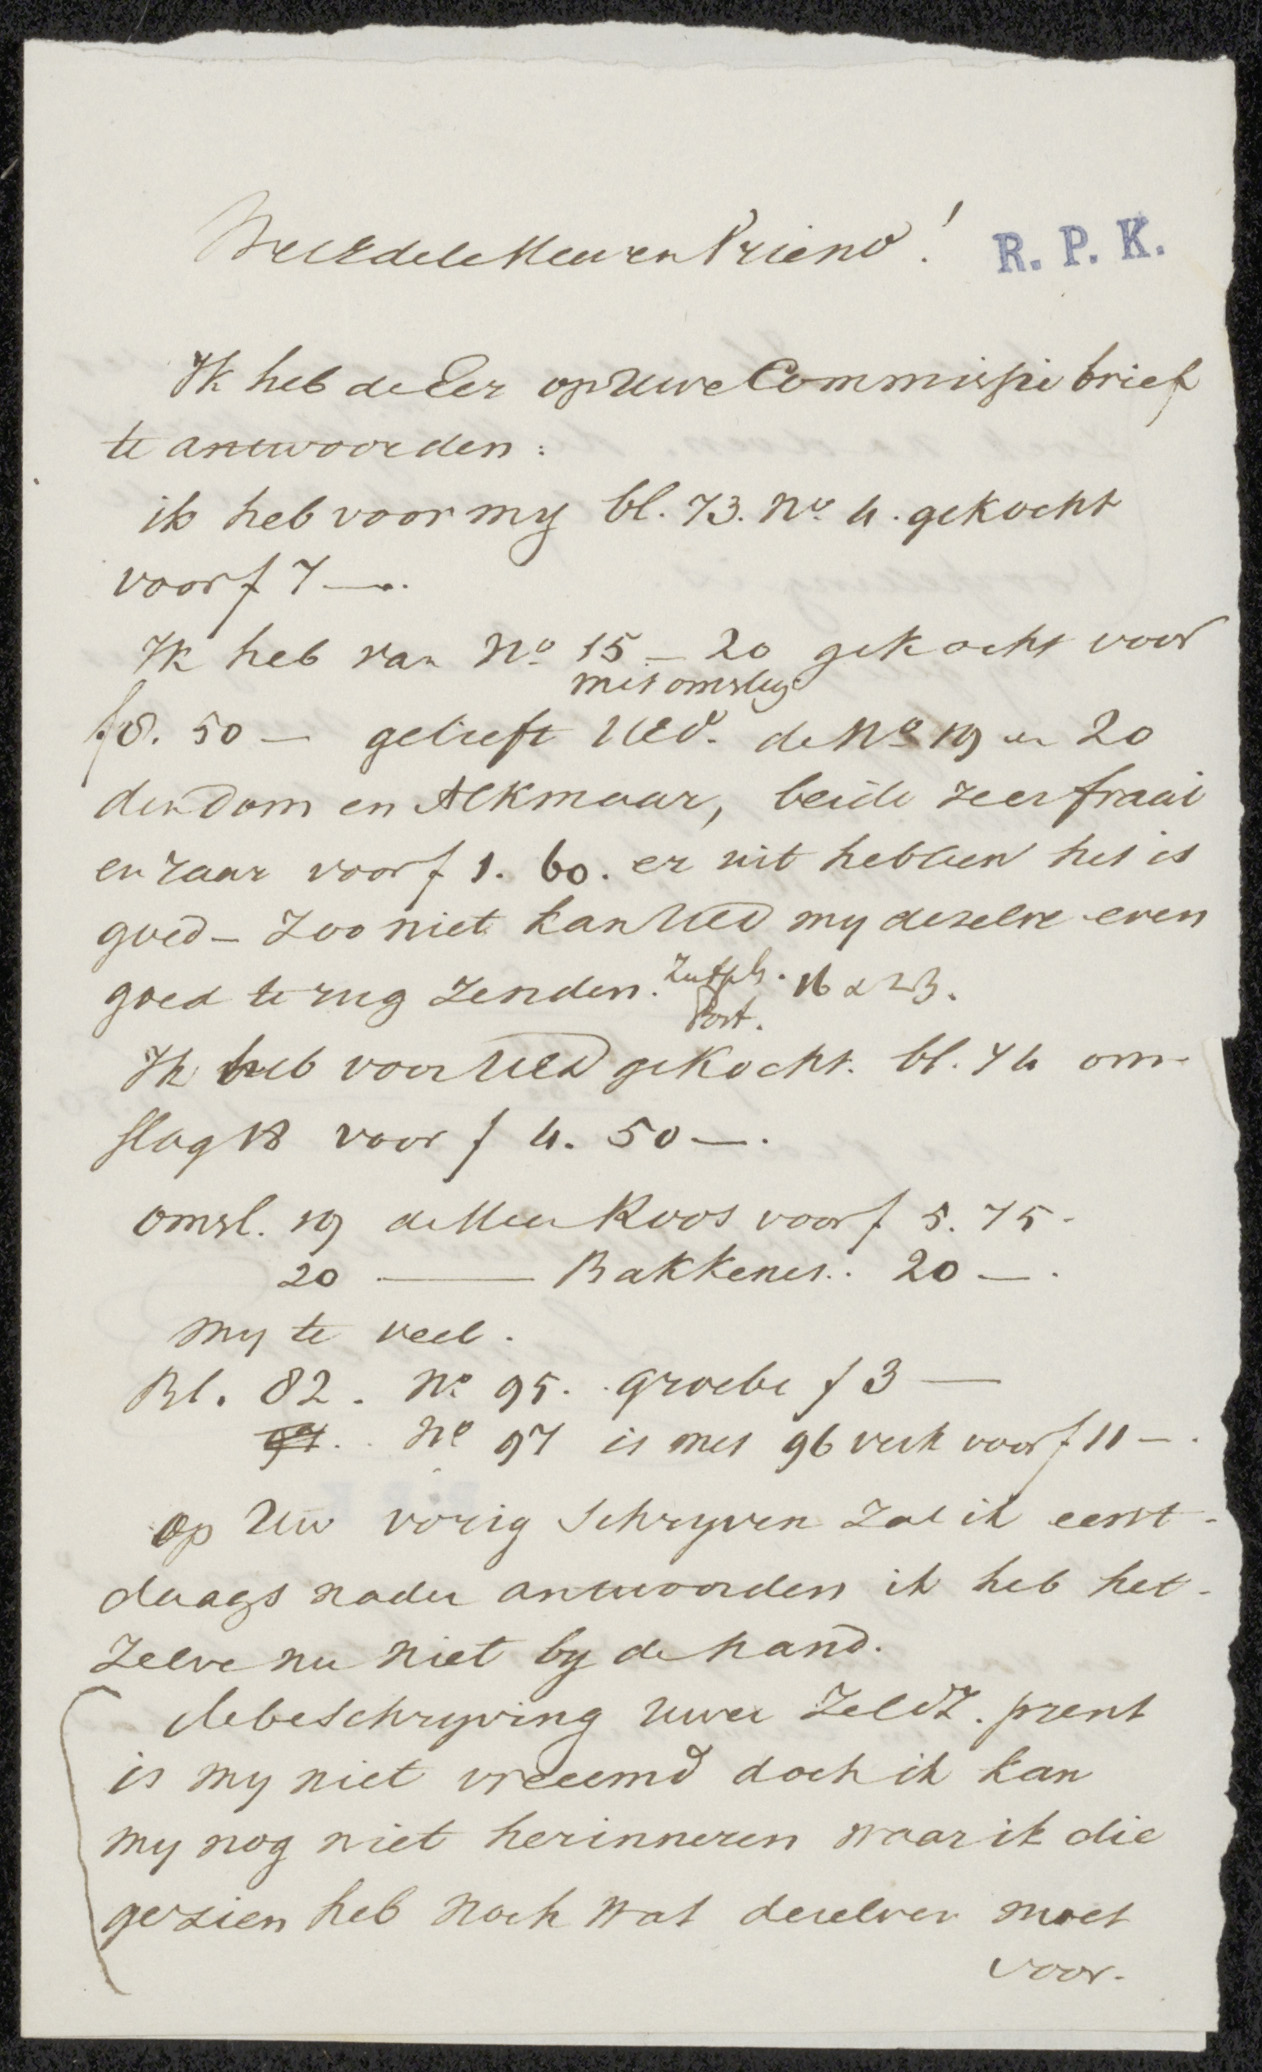 WelEdele Heer en Vriend!
R. P. K.
Ik heb de Eer op Uwe Commissie brief
te antwoorden:
ik heb voor my bl. 73. No. 4. gekocht
voor f 7 —.
Ik heb van No 15 — 20 gekocht voor
met omslag
f 8. 50 — gelieft UEd. de No 19 en 20
den Dom en Alkmaar, beide zeer fraai
en raar voor f 1. 60. er uit hebben het is
goed — Zoo niet kan UEd my dezelve even
goed terug zenden. Zutph. 16 a 23.
Port.
Ik heb voor UEd gekocht. bl. 74 om-
slag 18 voor f 4. 50 —.
omsl. 19 de Heer Roos voor f 5. 75 -
20 ——— Bakkenes.. 20 —.
my te veel.
Bl. 82. No. 95. groebe f 3 —
97. No 97 is met 96 verk voor f 11 —.
op Uw vorig schryven zal ik eerst-
daags nader antwoorden ik heb het-
zelve nu niet by de hand.
de beschryving uwer Zeldz. prent
is my niet vreemd doch ik kan
my nog niet herinneren waar ik die
gezien heb noch wat dezelven moet
voor-